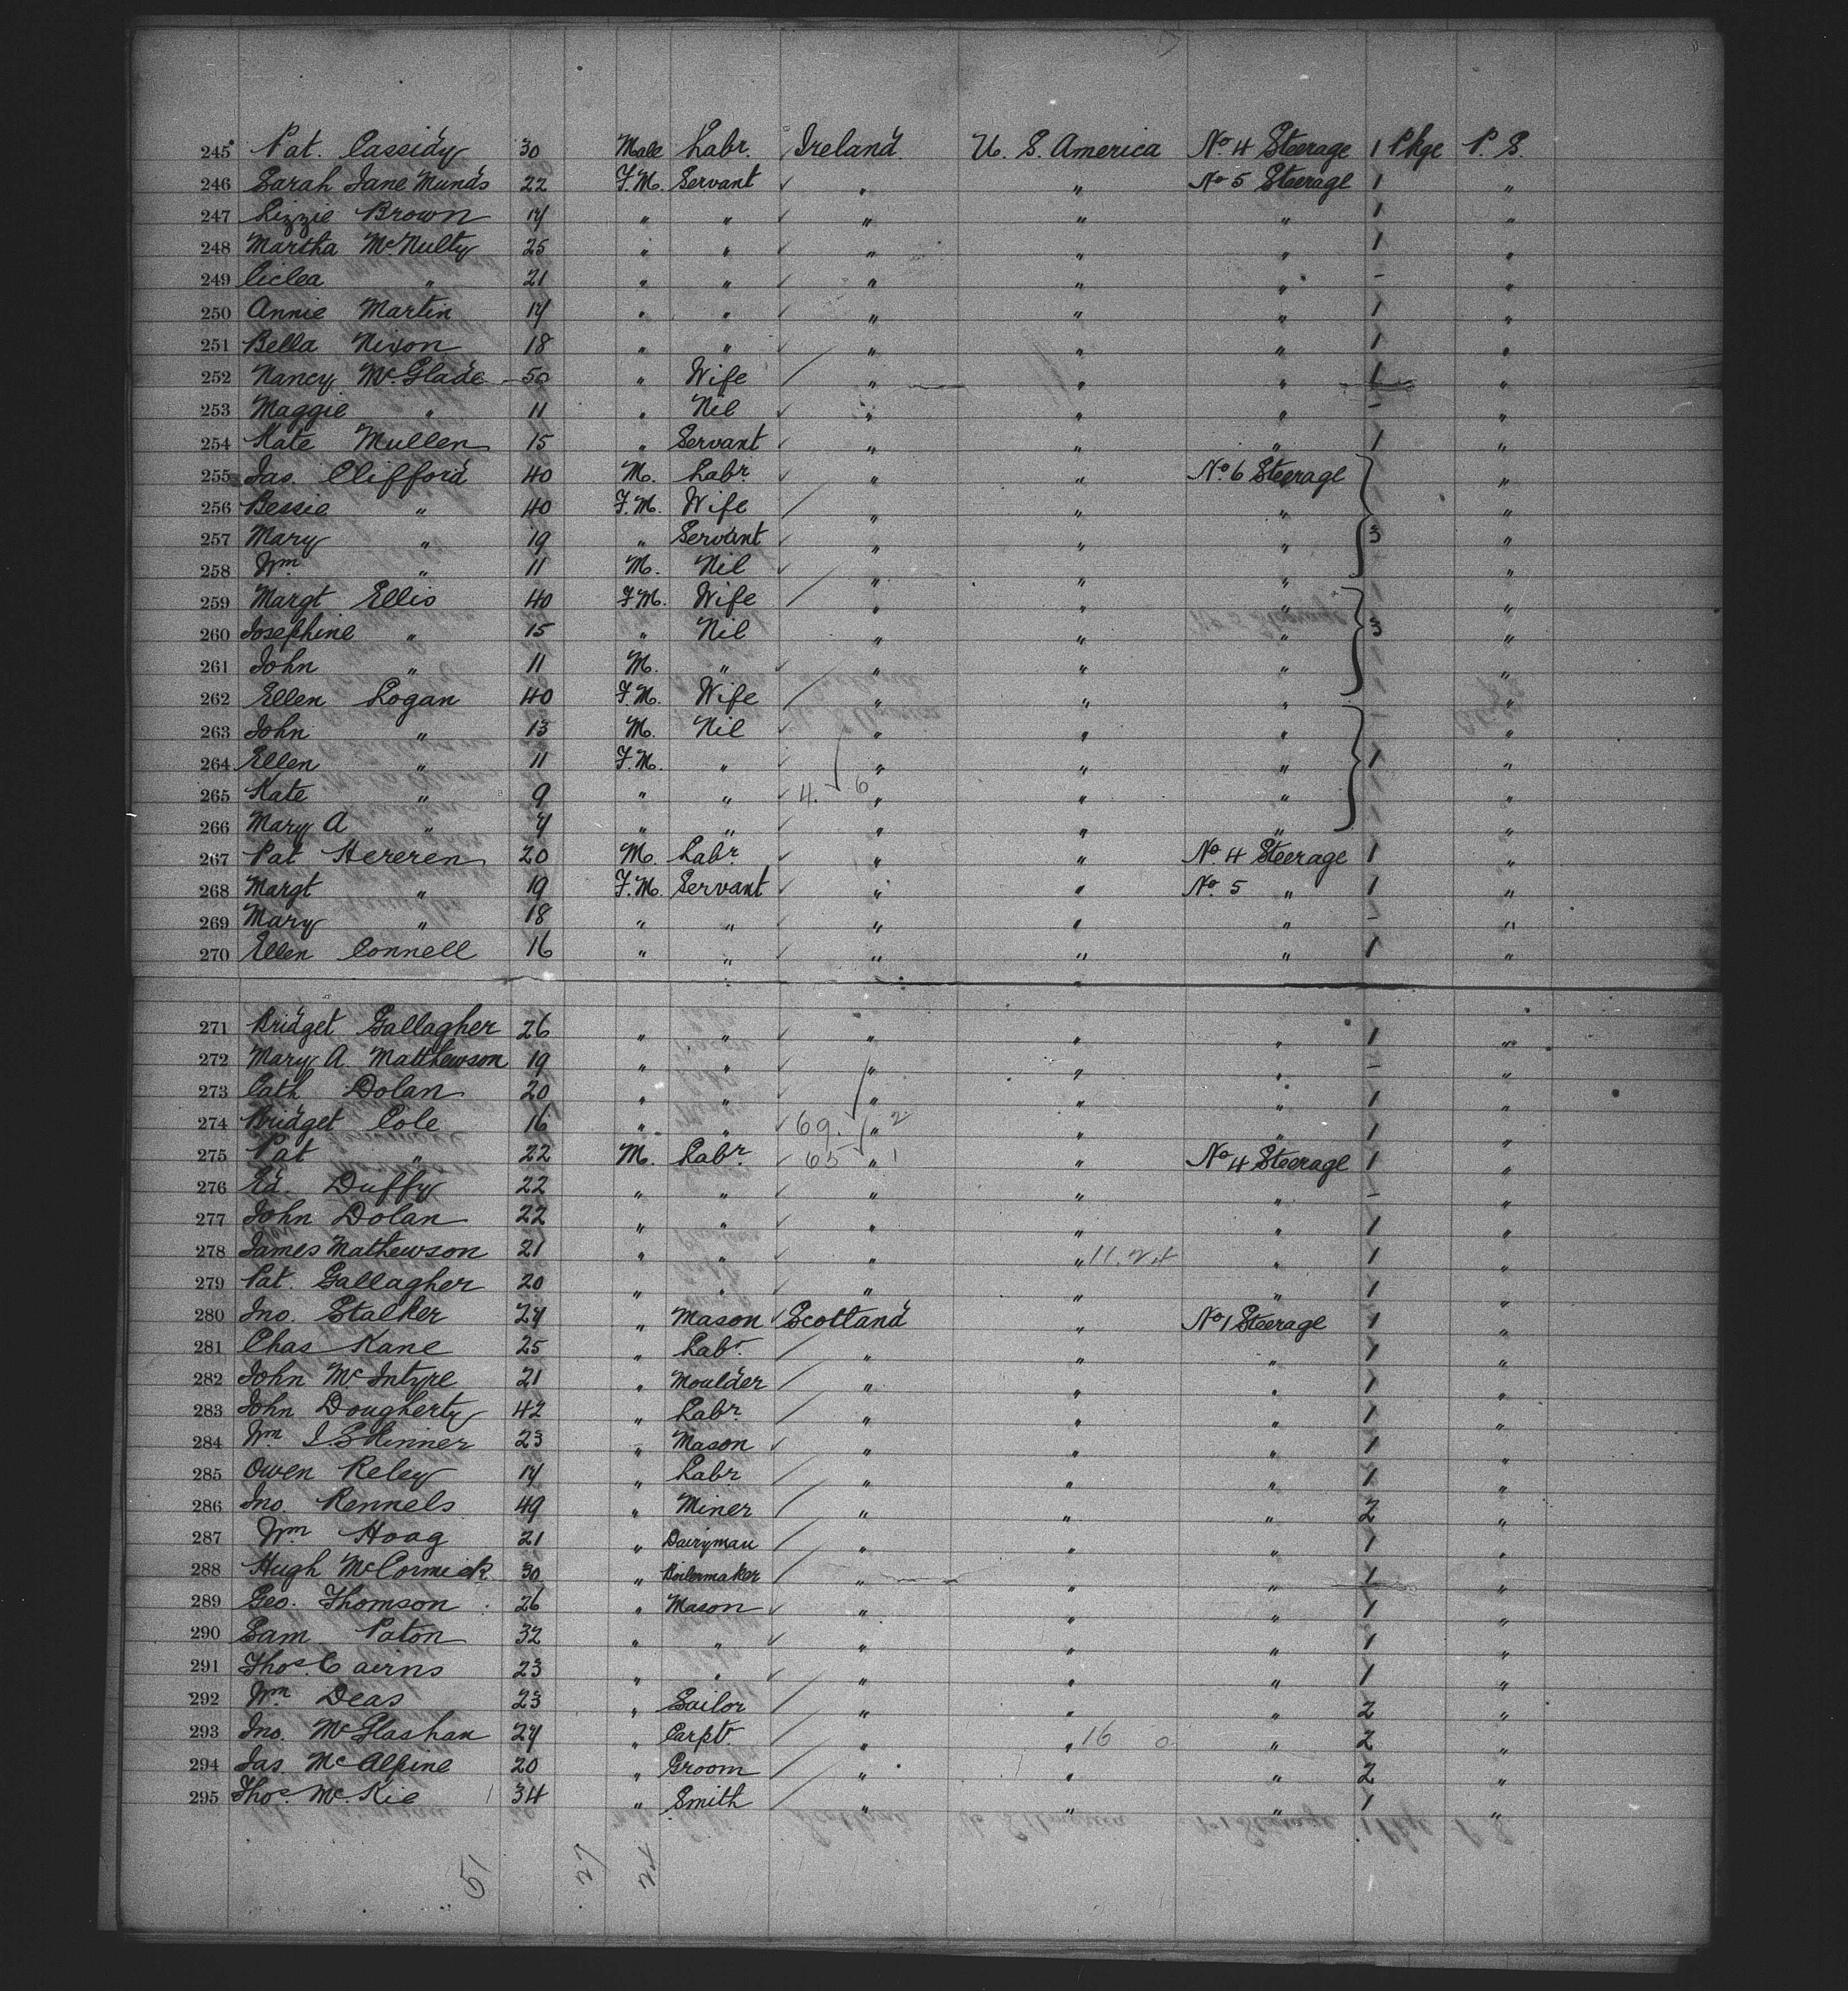 245 Pat. Cassidy 30 Male Labr. Ireland U. S. America No. 4 Steerage 1 Pkge P. S.
246 Sarah Jane Munds 22 F.M. Servant " " No 5 Steerage 1 "
247 Lizzie Brown 14 " " " " " 1 "
248 Martha McNulty 25 " " " " " 1 "
249 Ciclea " 21 " " " " " - "
250 Annie Martin 14 " " " " " 1 "
251 Bella Nixon 18 " " " " " 1 "
252 Nancy McGlade 50 " Wife " " " 1 "
253 Maggie " 11 " Nil " " " - "
254 Kate Mullen 15 " Servant " " " 1 "
255 Jas. Clifford 40 M. Labr. " " No. 6 Steerage "
256 Bessie " 40 F.M. Wife " " " "
257 Mary " 19 " Servant " " " 3 "
258 Wm " 11 M. Nil " " " "
259 Margt Ellis 40 F.M. Wife " " " "
260 Josephine " 15 " Nil " " " 3 "
261 John " 11 M. " " " " "
262 Ellen Logan 40 F.M. Wife " " " "
263 John " 13 M. Nil " " " "
264 Ellen " 11 F.M. " " " " 1 "
265 Kate " 9 " " 4. 6 " " " "
266 Mary A " 4 " " " " " "
267 Pat Hereren 20 M. Labr. " " No. 4 Steerage 1 "
268 Margt " 19 F.M. Servant " " No. 5 " 1 "
269 Mary " 18 " " " " " - "
270 Ellen Connell 16 " " " " " 1 "
271 Bridget Gallagher 26 " " " " " 1 "
272 Mary A. Matthewson 19 " " " " " - "
273 Cath Dolan 20 " " " " " 1 "
274 Bridget Cole 16 " " 69. " 2 " " 1 "
275 Pat " 22 M. Labr. 65 " 1 " No 4 Steerage 1 "
276 Ed. Duffy 22 " " " " " - "
277 John Dolan 22 " " " " " 1 "
278 James Mathewson 21 " " " " 11. 24 " 1 "
279 Pat. Gallagher 20 " " " " " 1 "
280 Jno. Stalker 24 " Mason Scotland " No 1 Steerage 1 "
281 Chas Kane 25 " Labr. " " " 1 "
282 John McIntyre 21 " Moulder " " " 1 "
283 John Dougherty 42 " Labr. " " " 1 "
284 Wm J. Skinner 23 " Mason " " " 1 "
285 Owen Reley 14 " Labr " " " 1 "
286 Jno. Rennels 49 " Miner " " " 2 "
287 Wm Hoag 21 " Dairyman " " " 1 "
288 Hugh McCormick 30 " Boilermaker " " " 1 "
289 Geo. Thomson 26 " Mason " " " 1 "
290 Sam Paton 32 " " " " " 1 "
291 Thos. Cairns 23 " " " " " 1 "
292 Wm Deas 23 " Sailor " " " 2 "
293 Jno. McGlashan 24 " Carptr. " " 16 0 " 2 "
294 Jas. McAlpine 20 " Groom " " " 2 "
295 Thos. McKie 34 " Smith " " " 1 "
51 27 24